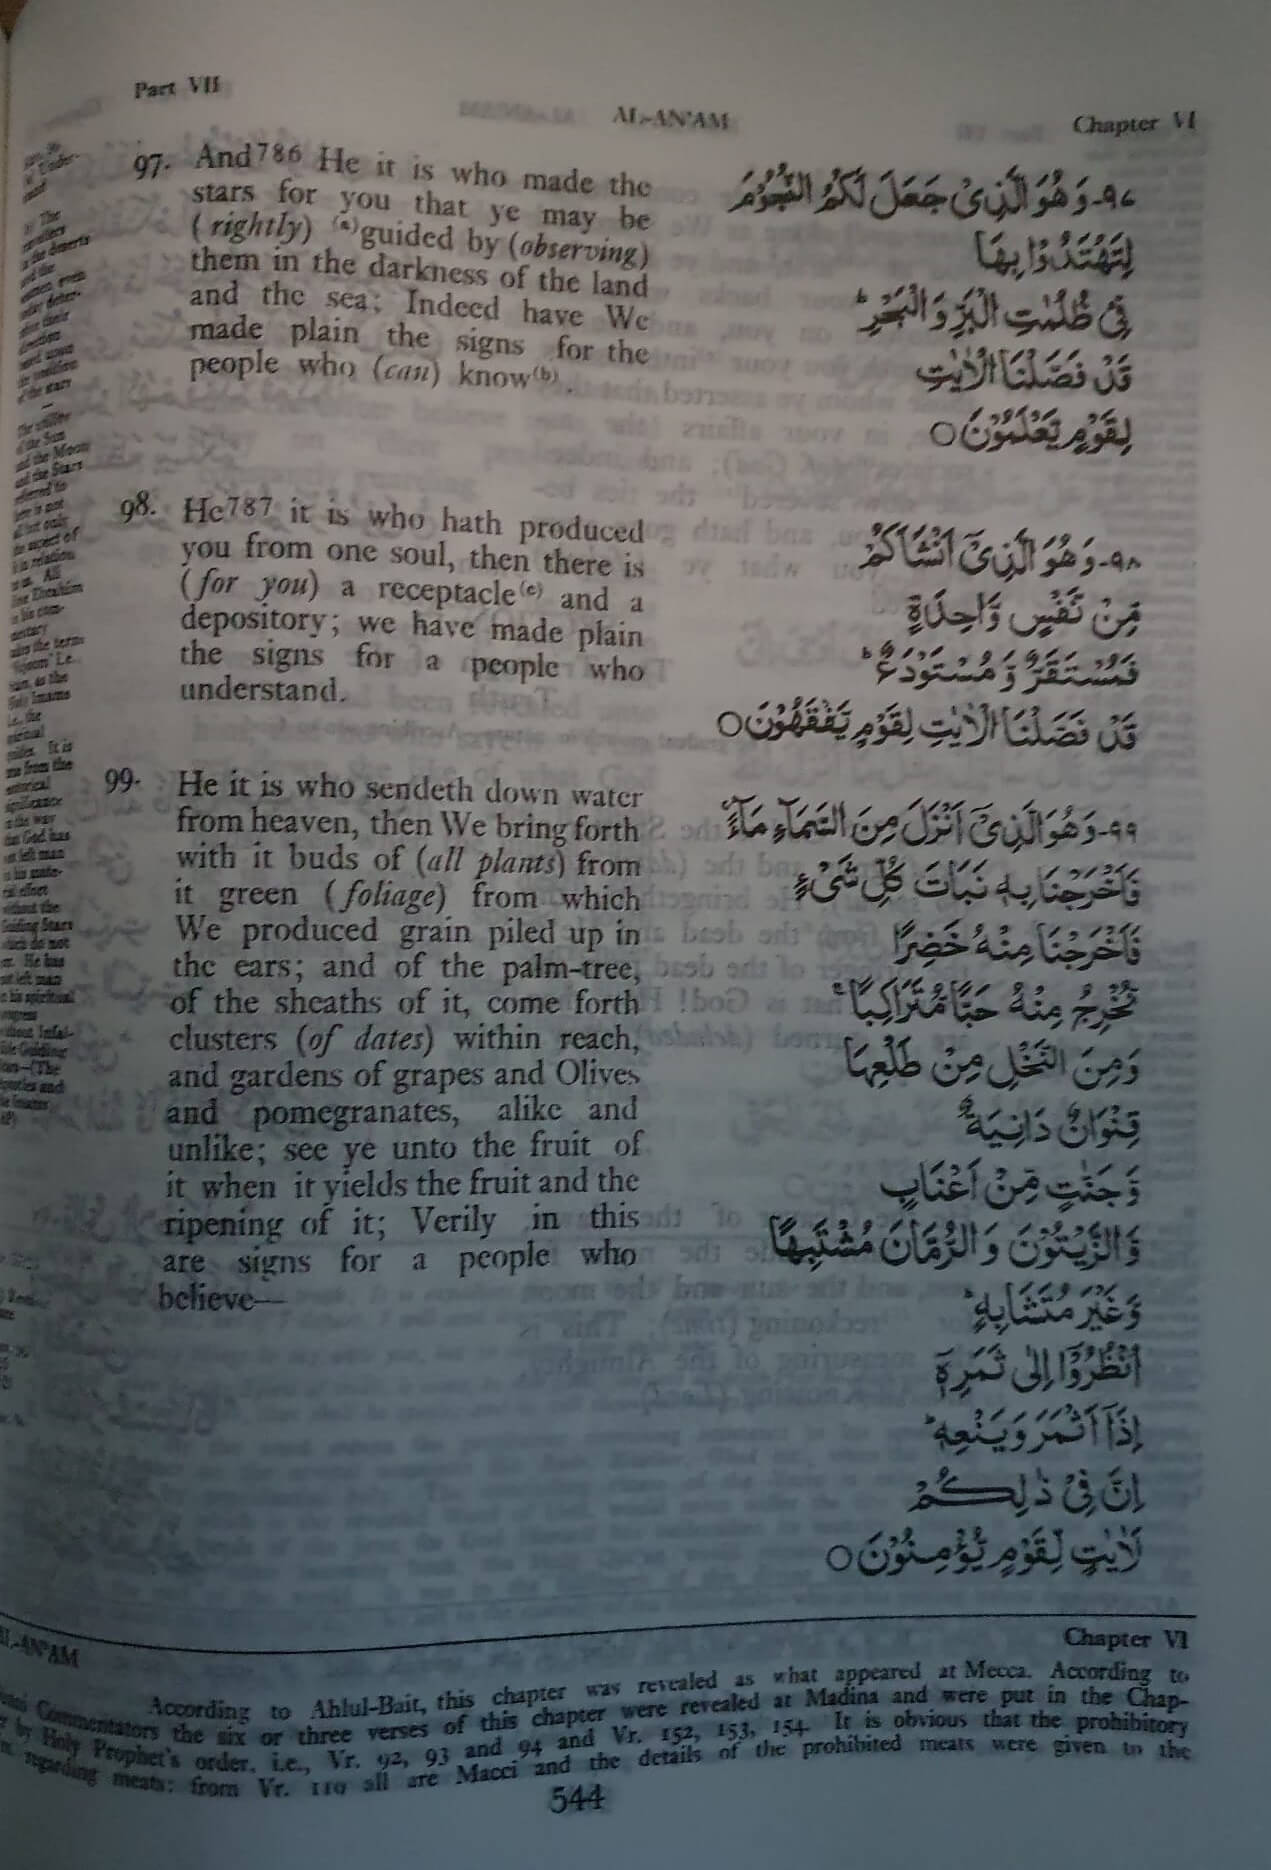 Part VII
AL-AN'AM
Chapter VI
97. And786 He it is who made the
stars for you that ye may be
(rightly) (a)guided by (observing)
them in the darkness of the land
and the sea; Indeed have We
made plain the signs for the
people who (can) know(b).
۹۷-وَهُوَ الَّذِىْ جَعَلَ لَكُمُ النُّجُوْمَ
لِتَهْتَدُوْا بِهَا
فِىْ ظُلُمٰتِ الْبَرِّ وَالْبَحْرِ ؕ
قَدْ فَصَّلْنَا الْاٰيٰتِ
لِقَوْمٍ يَّعْلَمُوْنَ ○
98. He787 it is who hath produced
you from one soul, then there is
(for you) a receptacle(c) and a
depository; we have made plain
the signs for a people who
understand.
۹۸-وَهُوَ الَّذِىْٓ اَنْشَاَكُمْ
مِّنْ نَّفْسٍ وَّاحِدَةٍ
فَمُسْتَقَرٌّ وَّمُسْتَوْدَعٌ ؕ
قَدْ فَصَّلْنَا الْاٰيٰتِ لِقَوْمٍ يَّفْقَهُوْنَ ○
99. He it is who sendeth down water
from heaven, then We bring forth
with it buds of (all plants) from
it green (foliage) from which
We produced grain piled up in
the ears; and of the palm-tree,
of the sheaths of it, come forth
clusters (of dates) within reach,
and gardens of grapes and Olives
and pomegranates, alike and
unlike; see ye unto the fruit of
it when it yields the fruit and the
ripening of it; Verily in this
are signs for a people who
believe—
۹۹-وَهُوَ الَّذِىْٓ اَنْزَلَ مِنَ السَّمَآءِ مَآءً ۚ
فَاَخْرَجْنَا بِهٖ نَبَاتَ كُلِّ شَىْءٍ
فَاَخْرَجْنَا مِنْهُ خَضِرًا
نُّخْرِجُ مِنْهُ حَبًّا مُّتَرَاكِبًا ۚ
وَمِنَ النَّخْلِ مِنْ طَلْعِهَا
قِنْوَانٌ دَانِيَةٌ
وَّجَنّٰتٍ مِّنْ اَعْنَابٍ
وَّالزَّيْتُوْنَ وَالرُّمَّانَ مُشْتَبِهًا
وَّغَيْرَ مُتَشَابِهٍ ؕ
اُنْظُرُوْٓا اِلٰى ثَمَرِهٖٓ
اِذَآ اَثْمَرَ وَيَنْعِهٖ ؕ
اِنَّ فِىْ ذٰلِكُمْ
لَاٰيٰتٍ لِّقَوْمٍ يُّؤْمِنُوْنَ ○
AL-AN'AM
Chapter VI
According to Ahlul-Bait, this chapter was revealed as what appeared at Mecca. According to
Commentators the six or three verses of this chapter were revealed at Madina and were put in the Chap-
by Holy Prophet's order, i.e., Vr. 92, 93 and 94 and Vr. 152, 153, 154. It is obvious that the prohibitory
regarding meats: from Vr. 119 all are Macci and the details of the prohibited meats were given to the
544